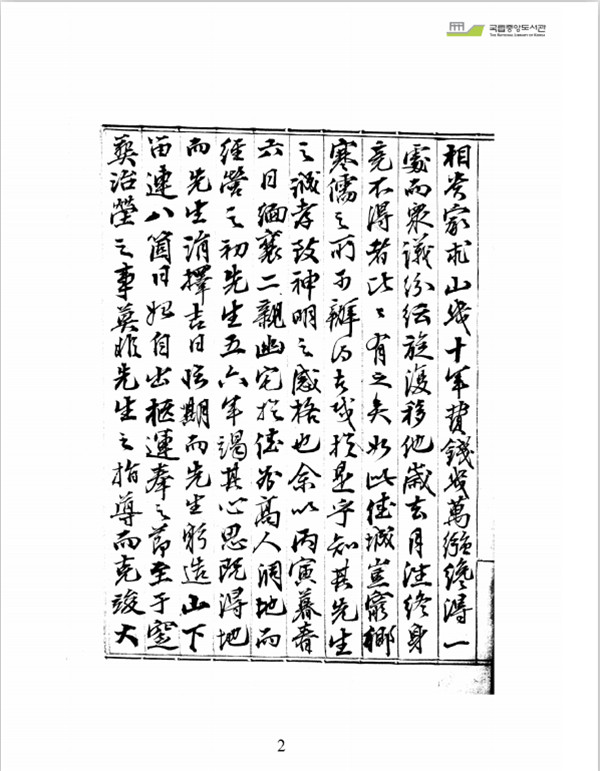 국립중앙도서관
THE NATIONAL LIBRARY OF KOREA
相 家求山幾十年費錢幾萬緡纔得一
處而衆議紛紜旋復移他歲去月往終身
竟不得者比〻有之矣如此佳城豈窮鄉
寒儒之所可辦得者哉於是乎知其先生
之誠孝致神明之感格也余以丙寅暮春
六日緬襄二親幽宅於 高人洞地而
經營之初先生五六年竭其心思既得地
而先生涓擇吉日臨期而先生躬造山下
留連八箇日始自出柩運奉之節至于窆
葬治塋之事莫非先生之指導而克竣大
2